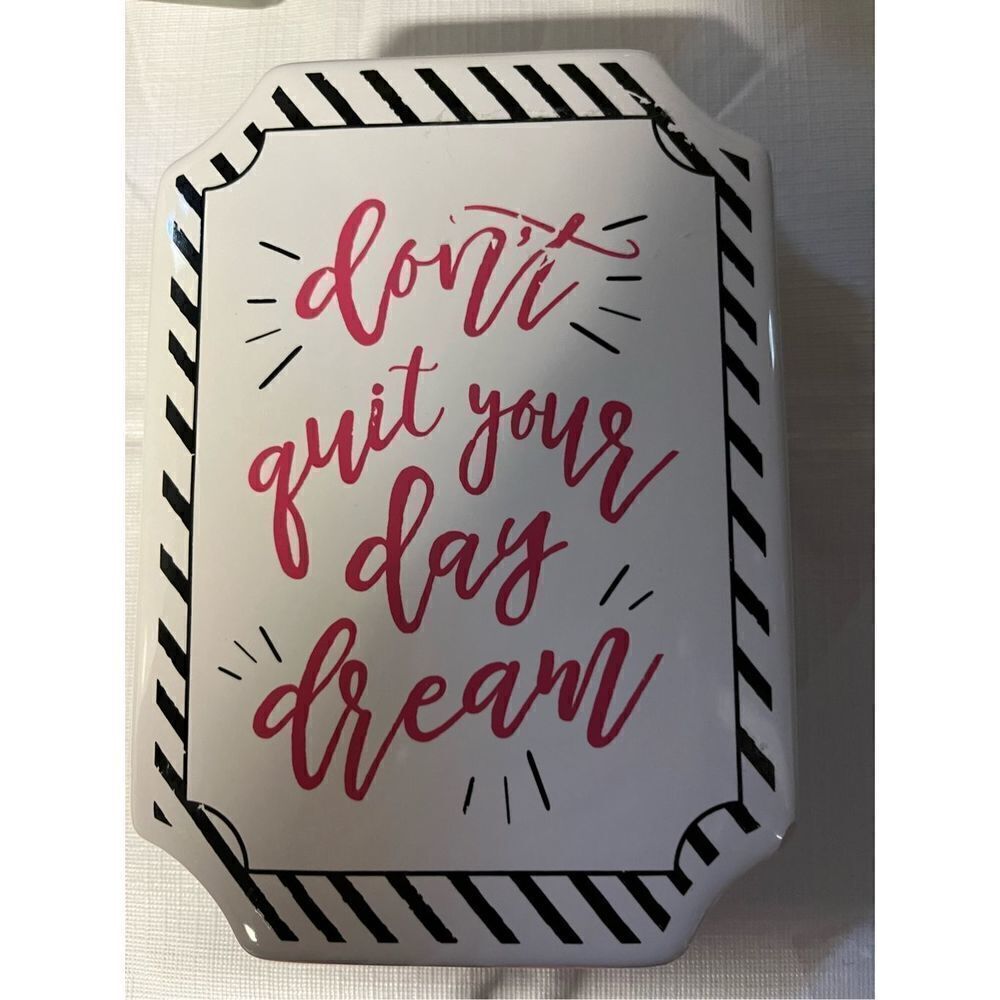 don't
quit your
day
dream